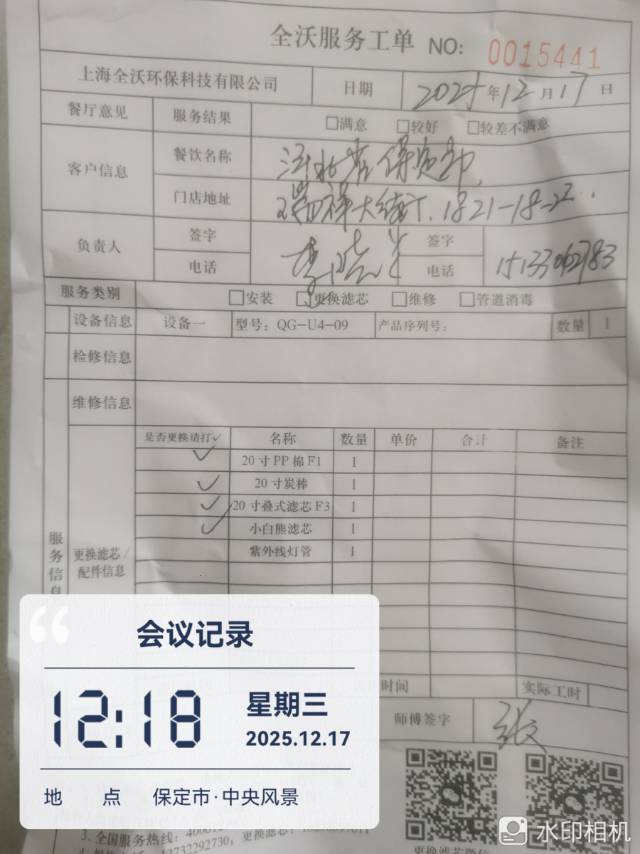 全沃服务工单 NO: 0015441
上海全沃环保科技有限公司 日期 2025年12月17日
餐厅意见 服务结果 □满意 □较好 □较差不满意
客户信息 餐饮名称
门店地址 1821-18-22
负责人 签字 签字
电话 电话
服务类别 □安装 □更换滤芯 □维修 □管道消毒
设备信息 设备一 型号: QG-U4-09 产品序列号: 数量 1
检修信息
维修信息
服务信息 更换滤芯/配件信息
是否更换请打✓ 名称 数量 单价 合计 备注
✓ 20寸PP棉F1 1
✓ 20寸炭棒 1
✓ 20寸叠式滤芯F3 1
✓ 小白熊滤芯 1
紫外线灯管 1
时间 实际工时
师傅签字 张
会议记录
12:18 星期三
2025.12.17
地 点 保定市·中央风景
3. 全国服务热线:
水印相机